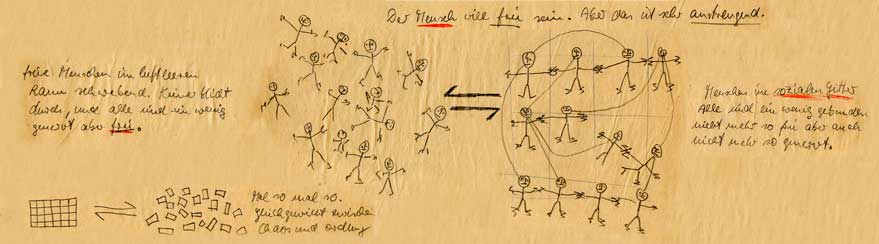 Der Mensch will frei sein. Aber das ist sehr anstrengend.
freie Menschen im luftleeren
Raum schwebend. Keiner blickt
durch, und alle sind ein wenig
genervt aber frei.
Menschen im sozialen Gitter
Alle sind ein wenig gebunden
nicht mehr so frei aber auch
nicht mehr so genervt.
Mal so mal so.
gleichgewicht zwischen
Chaos und ordnung